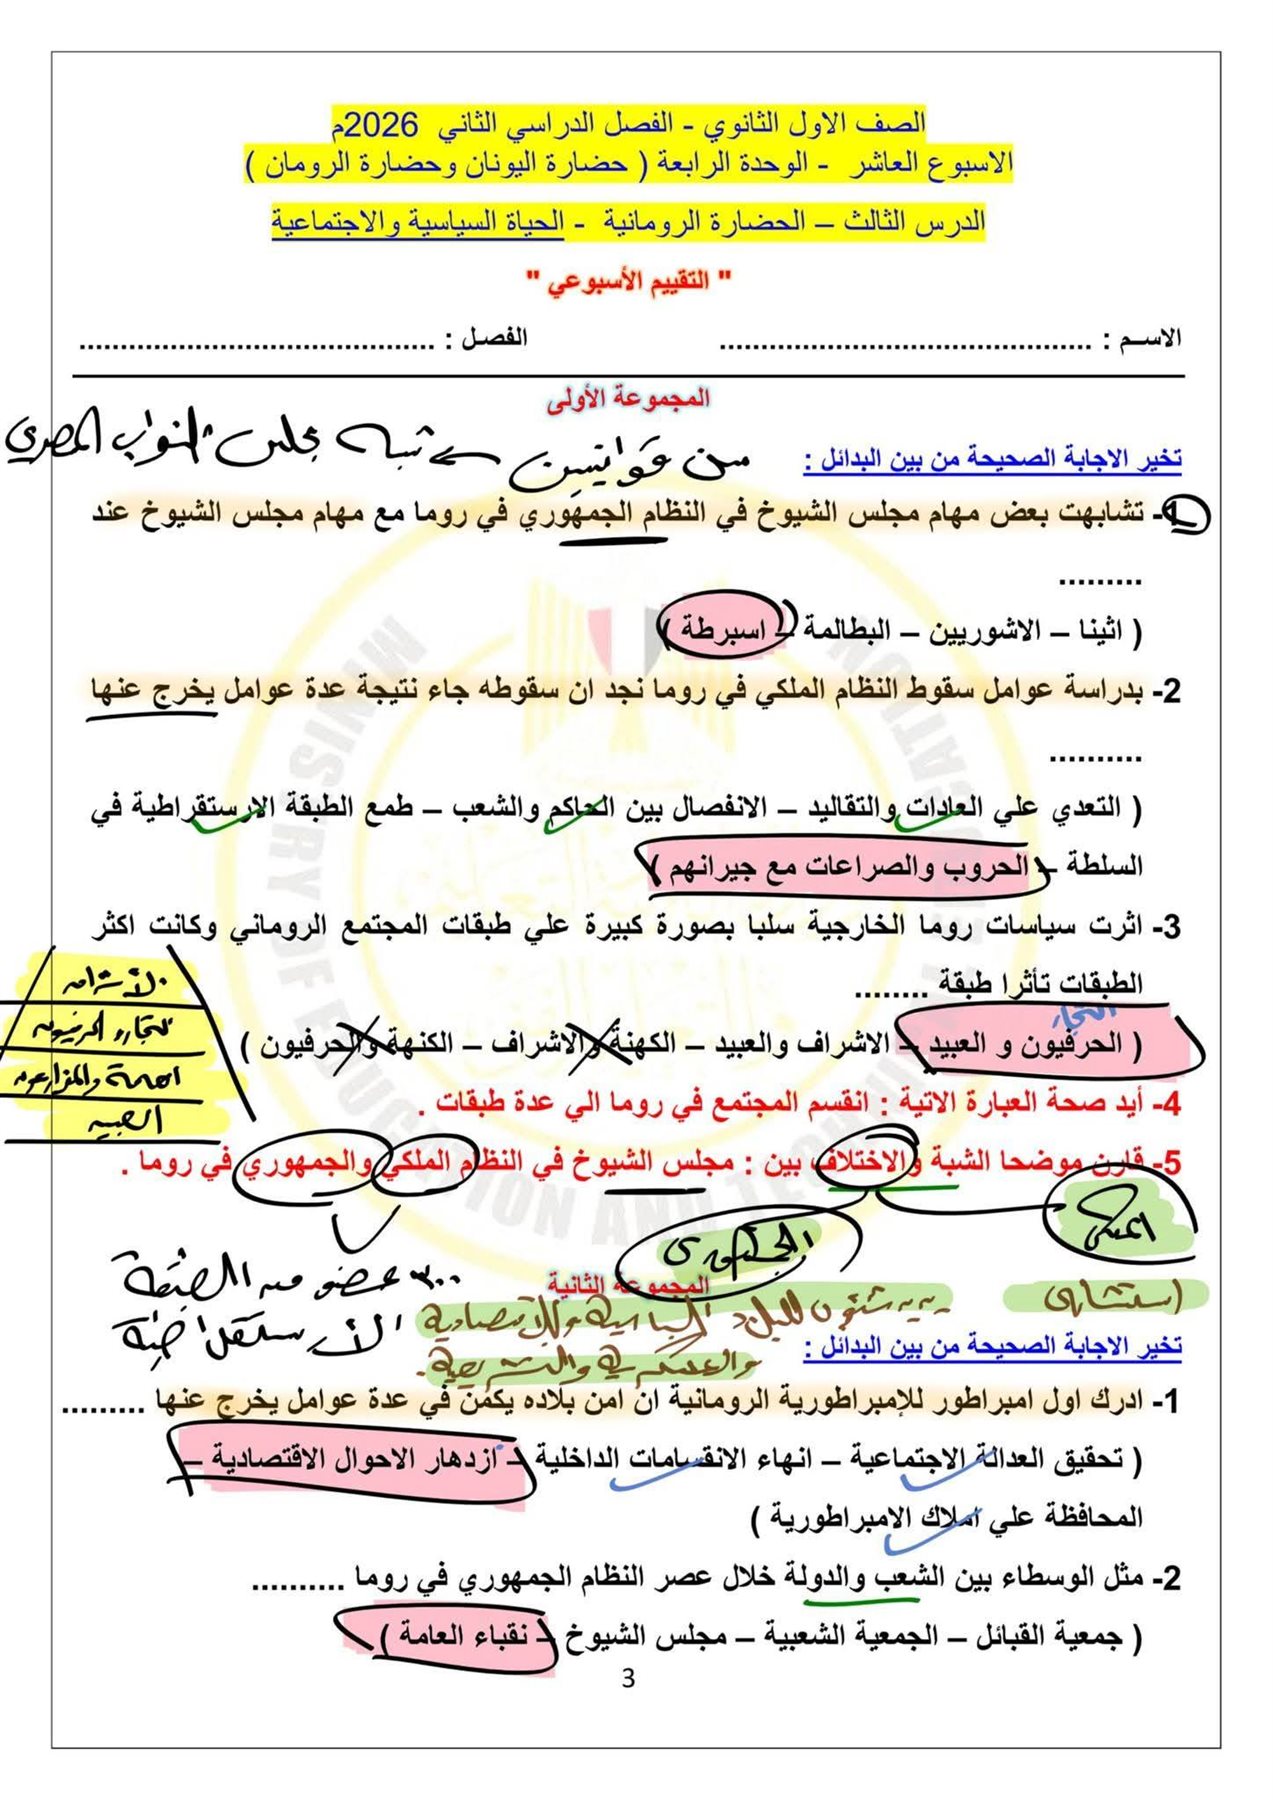 الصف الاول الثانوي - الفصل الدراسي الثاني 2026م
الاسبوع العاشر - الوحدة الرابعة ( حضارة اليونان وحضارة الرومان )
الدرس الثالث – الحضارة الرومانية - الحياة السياسية والاجتماعية
" التقييم الأسبوعي "
الاســم : ............................................ الفصل : ..........................................
المجموعة الأولى
سن قوانين
شبه مجلس النواب المصري
تخير الاجابة الصحيحة من بين البدائل :
1- تشابهت بعض مهام مجلس الشيوخ في النظام الجمهوري في روما مع مهام مجلس الشيوخ عند
.........
( اثينا – الاشوريين – البطالمة – اسبرطة )
2- بدراسة عوامل سقوط النظام الملكي في روما نجد ان سقوطه جاء نتيجة عدة عوامل يخرج عنها
..........
( التعدي علي العادات والتقاليد – الانفصال بين الحاكم والشعب – طمع الطبقة الارستقراطية في
السلطة – الحروب والصراعات مع جيرانهم )
3- اثرت سياسات روما الخارجية سلبا بصورة كبيرة علي طبقات المجتمع الروماني وكانت اكثر
الطبقات تأثرا طبقة ........
التجار
( الحرفيون و العبيد – الاشراف والعبيد – الكهنة والاشراف – الكنهة والحرفيون )
الأشراف
التجار والحرفيون
العامة والمزارعون
العبيد
4- أيد صحة العبارة الاتية : انقسم المجتمع في روما الي عدة طبقات .
5- قارن موضحا الشبة والاختلاف بين : مجلس الشيوخ في النظام الملكي والجمهوري في روما .
الملكي
الجمهوري
المجموعة الثانية
استشارى
شئون البلاد السياسية والاقتصادية
والعسكرية والتشريعية.
٣٠٠ عضو من الطبقة
الأرستقراطية
تخير الاجابة الصحيحة من بين البدائل :
1- ادرك اول امبراطور للإمبراطورية الرومانية ان امن بلاده يكمن في عدة عوامل يخرج عنها .........
( تحقيق العدالة الاجتماعية – انهاء الانقسامات الداخلية – ازدهار الاحوال الاقتصادية –
المحافظة علي املاك الامبراطورية )
2- مثل الوسطاء بين الشعب والدولة خلال عصر النظام الجمهوري في روما ..........
( جمعية القبائل – الجمعية الشعبية – مجلس الشيوخ – نقباء العامة )
3